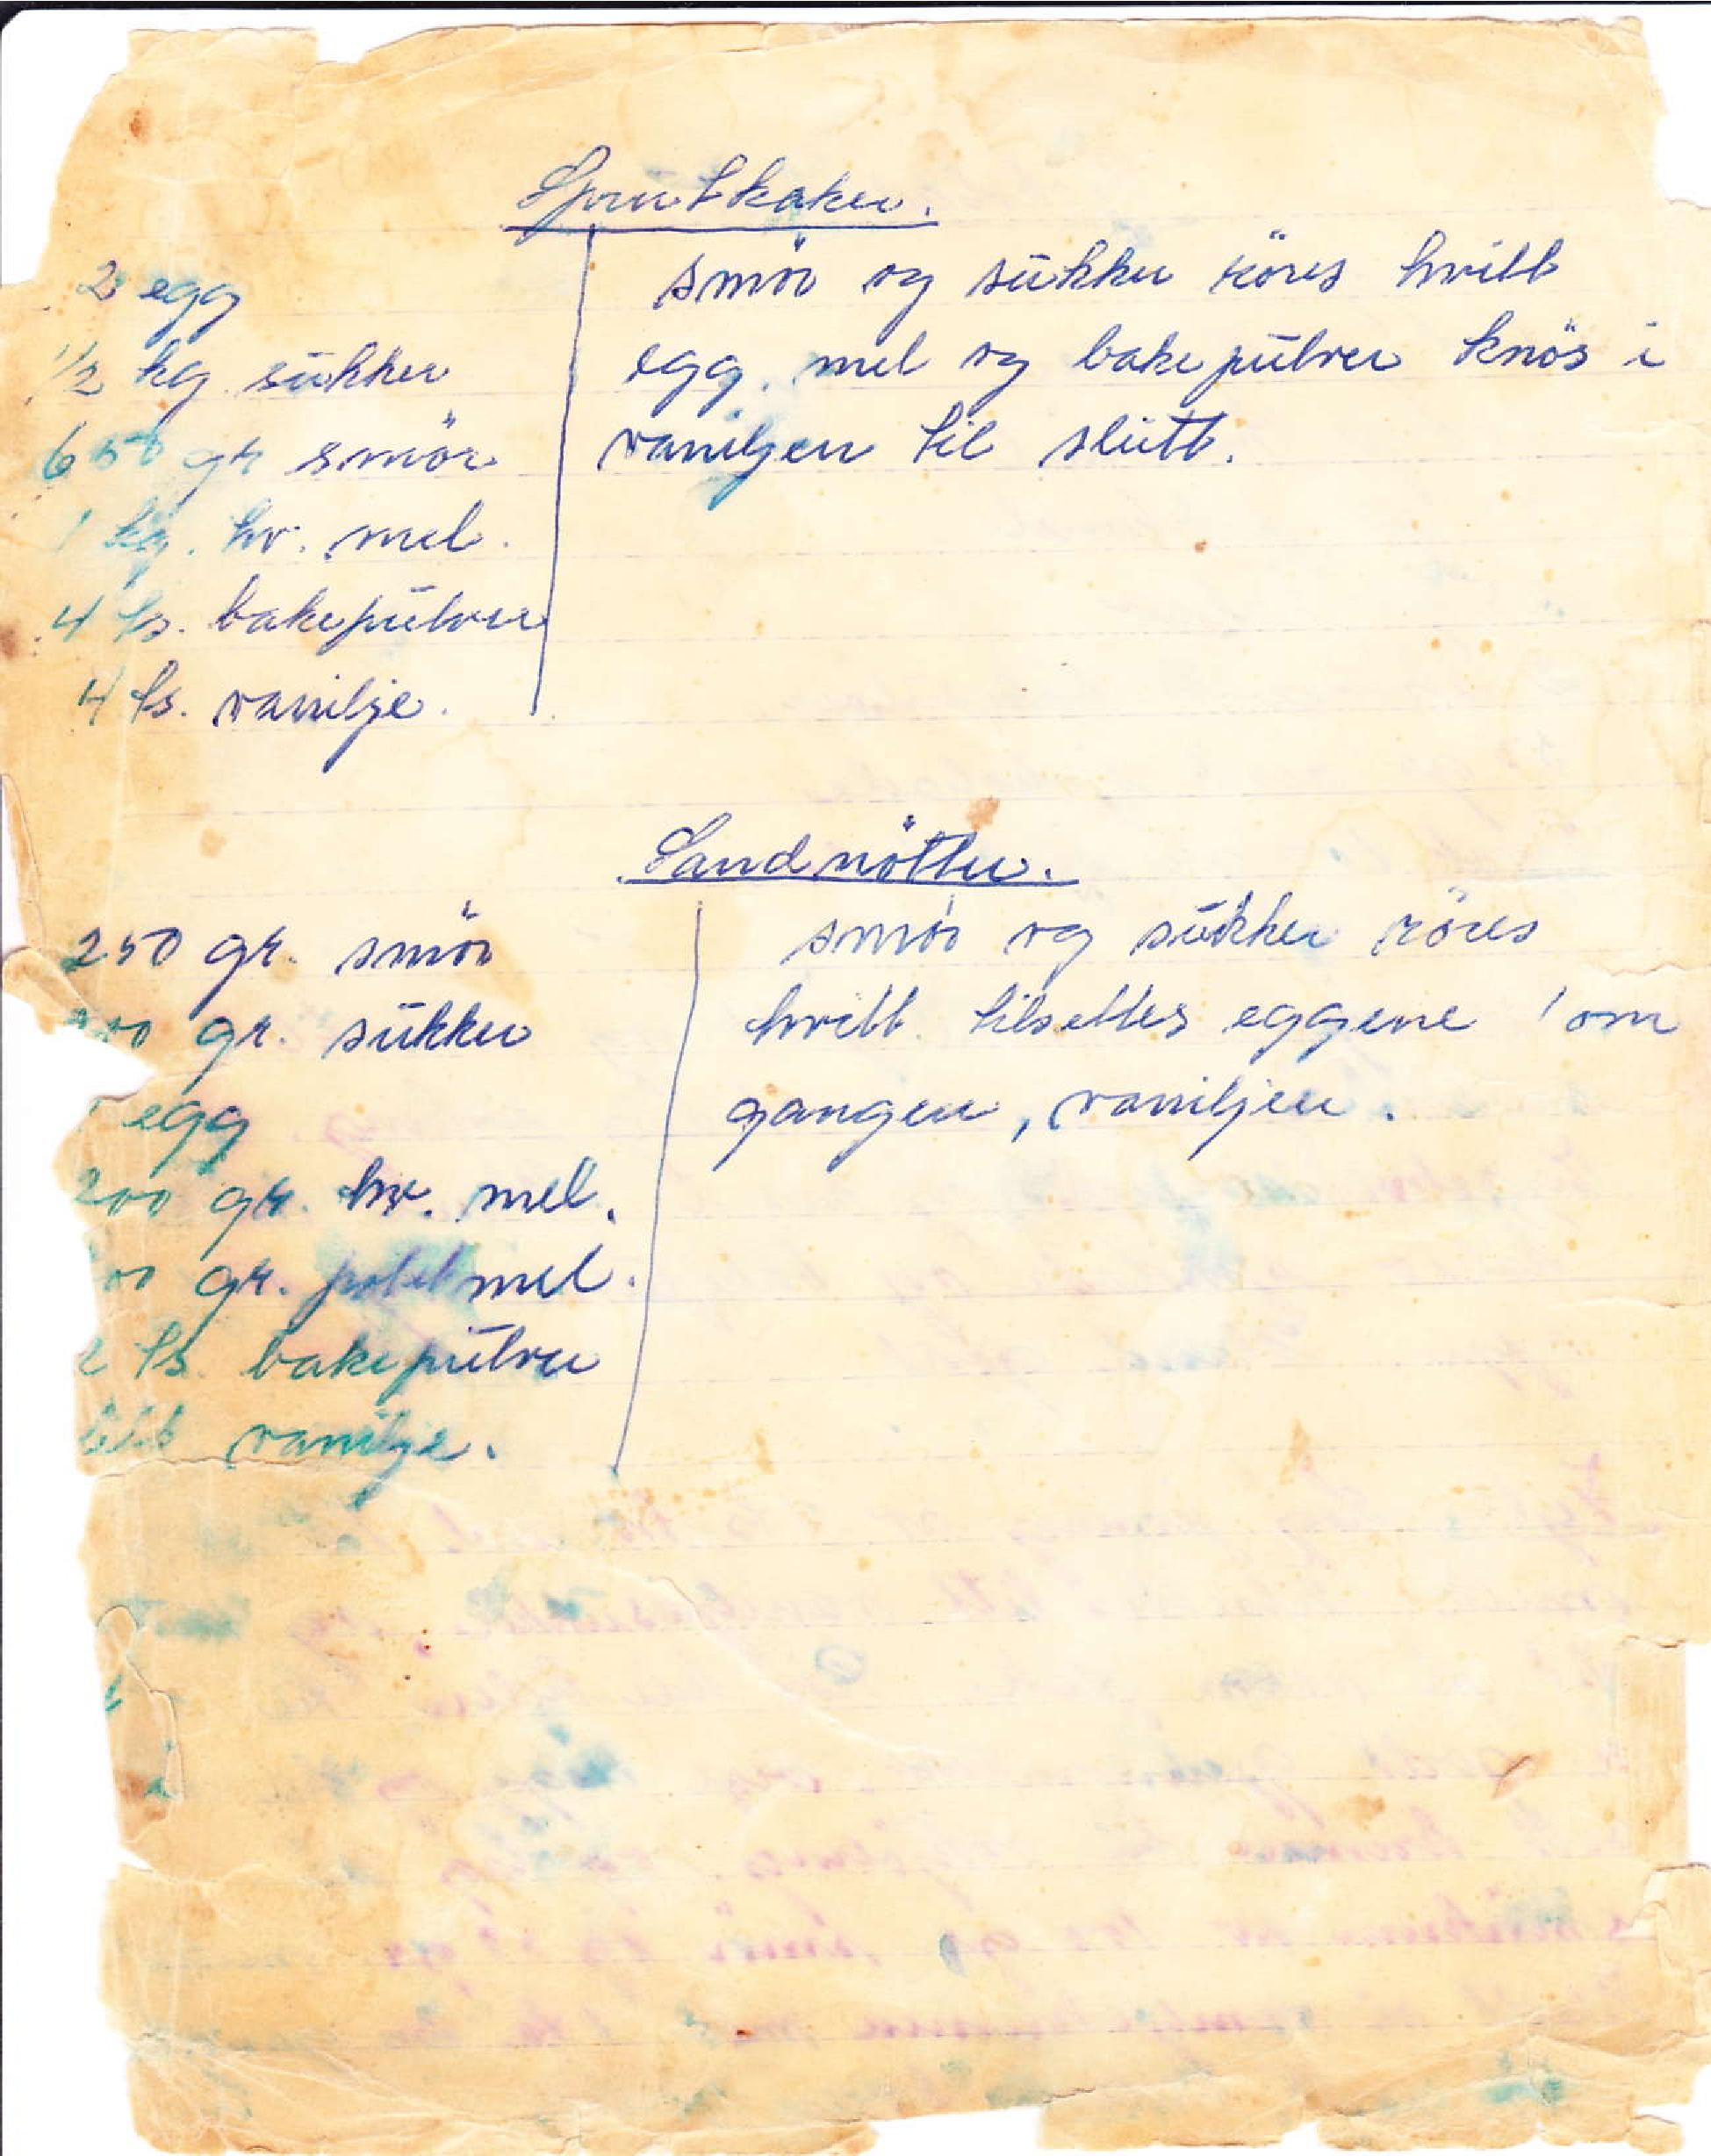 Spruttkaker.
2 egg
1/2 kg sukker
650 gr smör
1 kg. hv. mel.
4 ts. bakepulver
4 ts. vanilje.
smör og sukker röres hvitt
egg. mel og bakepulver knos i
vaniljen til slutt.
Sandnötter.
250 gr. smör
00 gr. sukker
egg
200 gr. hv. mel.
00 gr. potetmel.
2 ts. bakepulver
litt vanilje.
smör og sukker röres
hvitt tilsettes eggene 1 om
gangen, vaniljen.